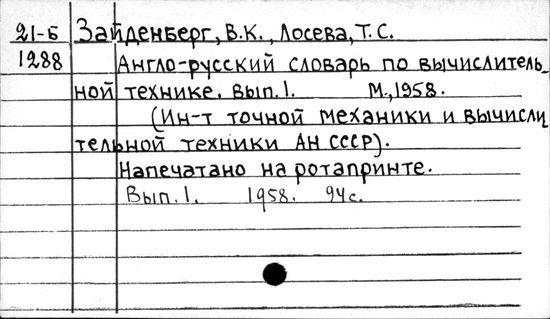 21-Б Зайденберг, В.К., Лосева, Т.С.
1288 Англо-русский словарь по вычислитель-
ной технике. Вып.1. М., 1958.
(Ин-т точной механики и вычисли
тельной техники АН СССР).
Напечатано на ротапринте.
Вып.1. 1958. 94с.